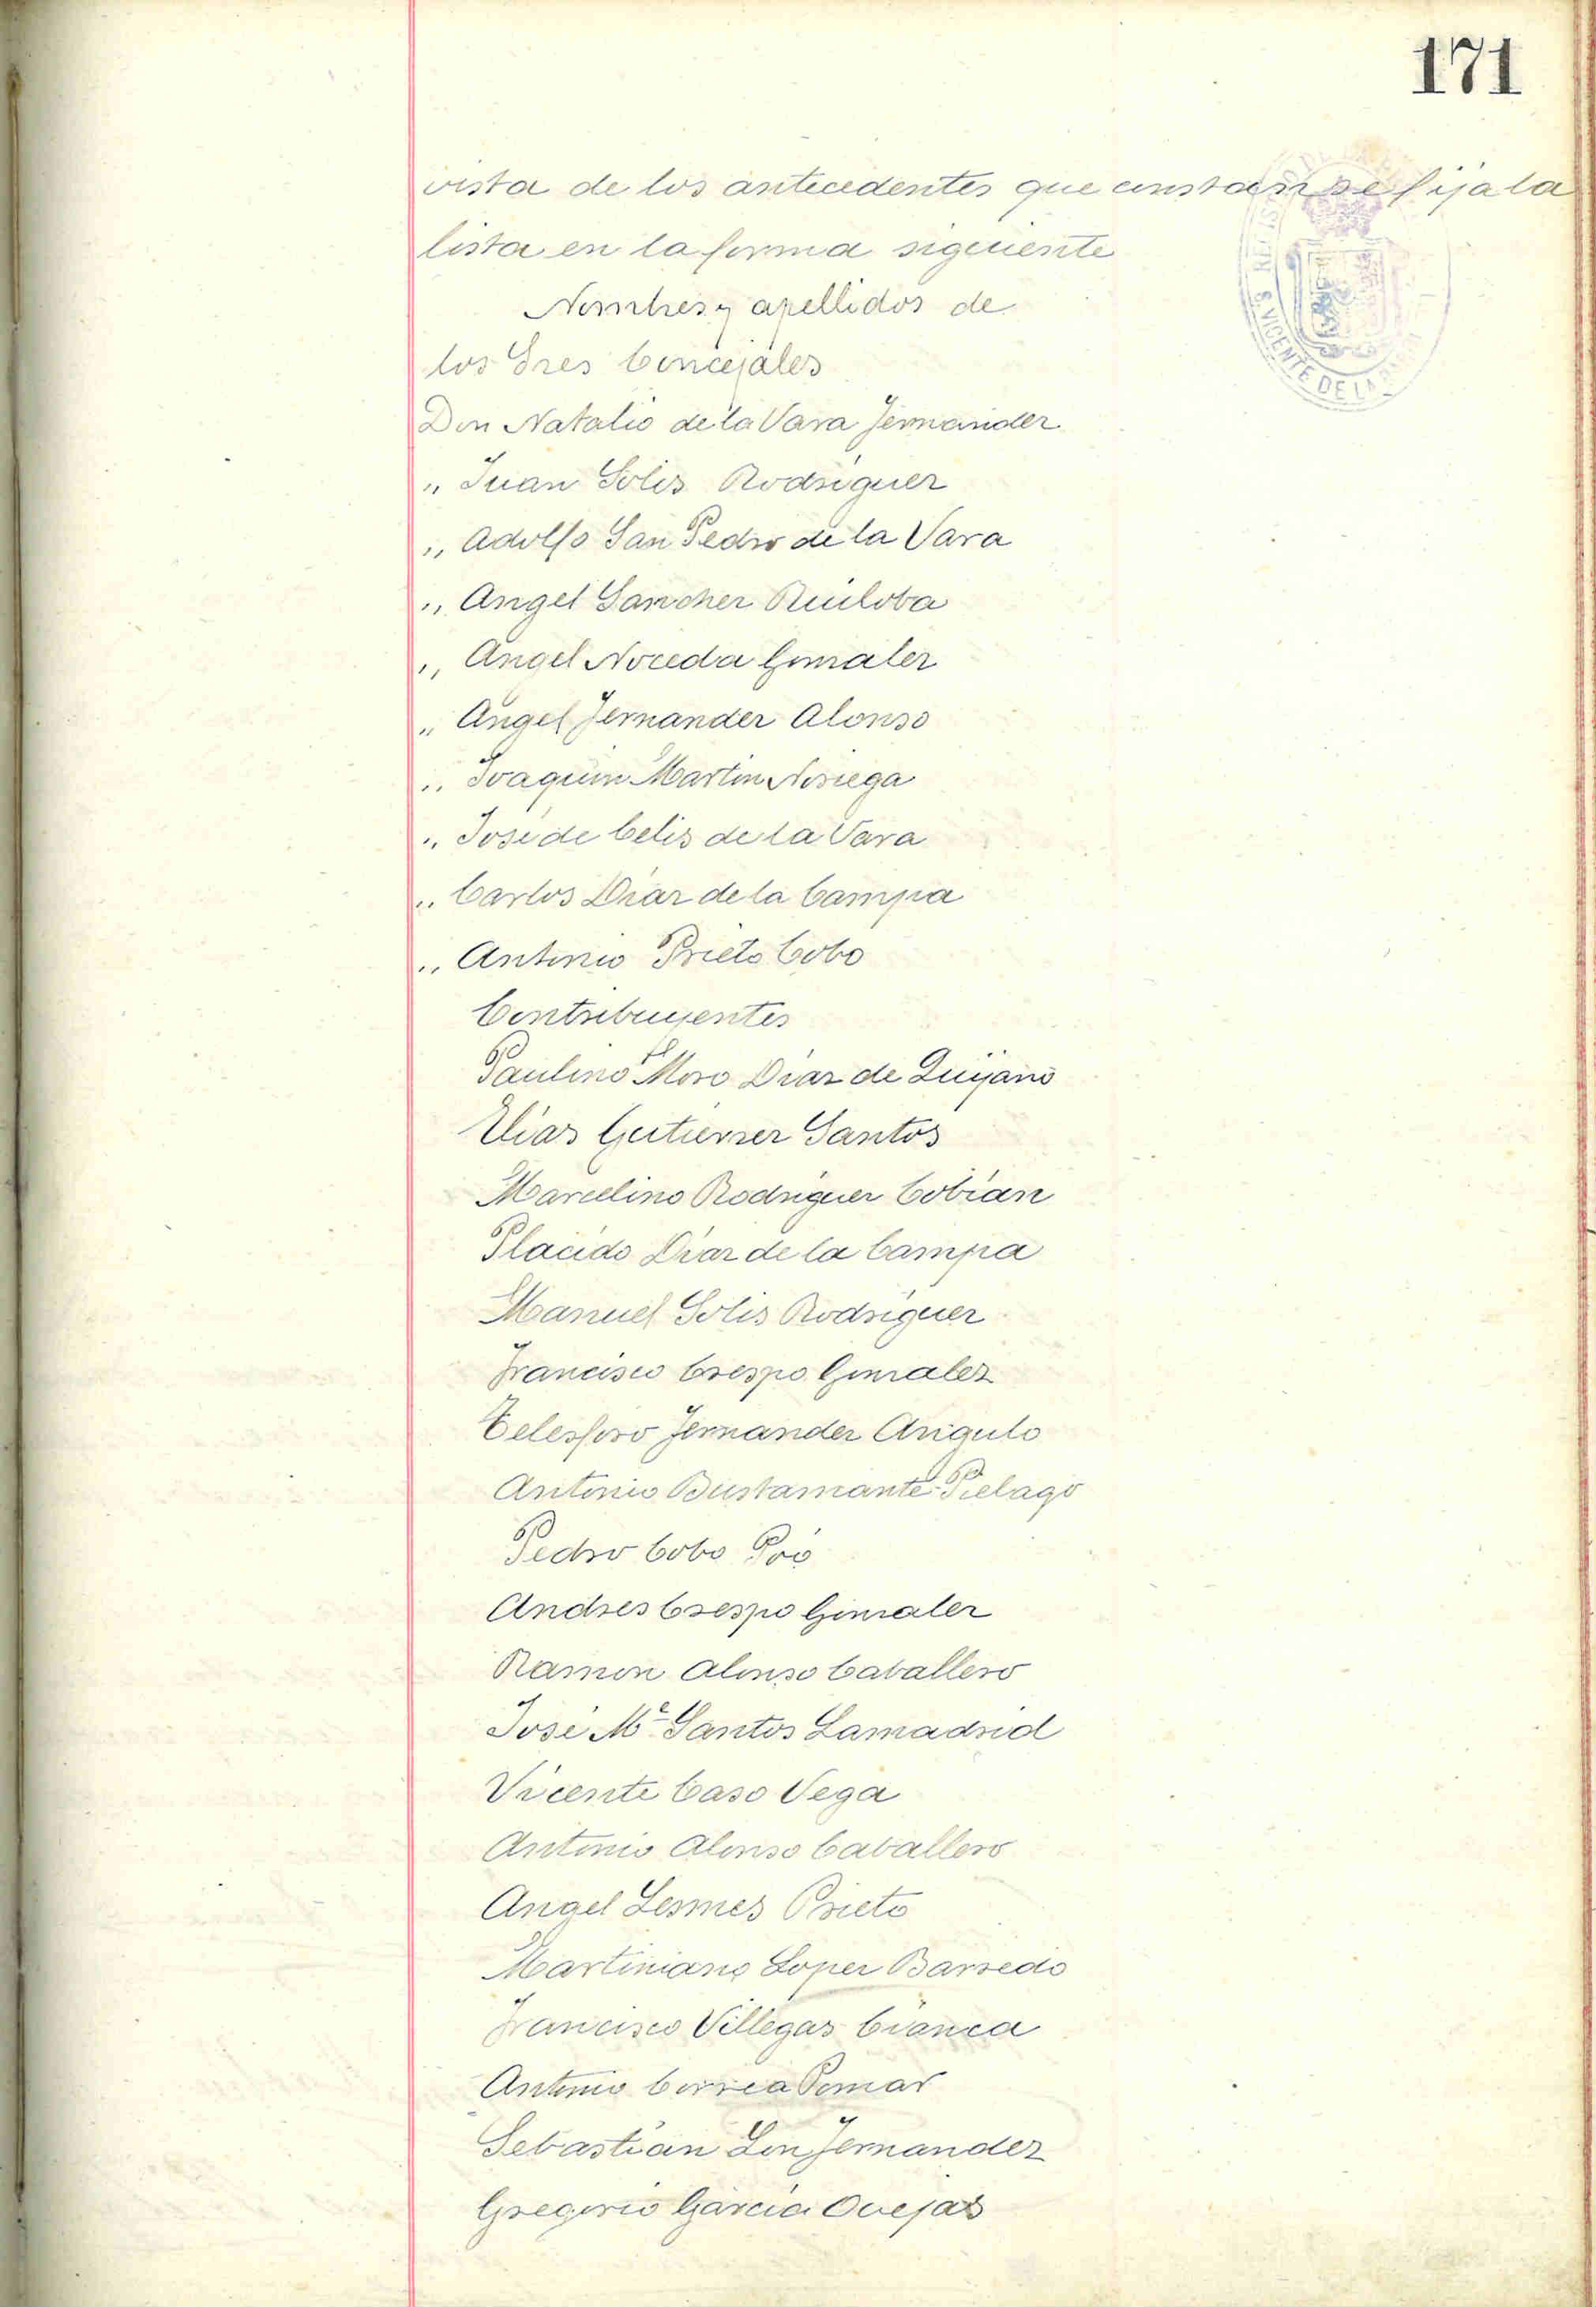 171
vista de los antecedentes que constan se fija la
lista en la forma siguiente
Nombres y apellidos de
los Sres Concejales
Don Natalio de la Vara Fernandez
" Juan Solis Rodriguez
" Adolfo San Pedro de la Vara
" Angel Sanchez Ruiloba
" Angel Noceda Gonzalez
" Angel Fernandez Alonso
" Joaquin Martin Noriega
" José de Celis de la Vara
" Carlos Diaz de la Campa
" Antonio Prieto Cobo
Contribuyentes
Paulino Moro Diaz de Quijano
Elias Gutierrez Santos
Marcelino Rodriguez Cobian
Placido Diaz de la Campa
Manuel Solis Rodriguez
Francisco Crespo Gonzalez
Telesforo Fernandez Angulo
Antonio Bustamante Pielago
Pedro Cobo Poó
Andres Crespo Gonzalez
Ramon Alonso Caballero
José Mª Santos Lamadrid
Vicente Caso Vega
Antonio Alonso Caballero
Angel Lesmes Prieto
Martiniano Lopez Barredo
Francisco Villegas
Antonio Correa Pomar
Sebastian Fernandez
Gregorio Garcia Ovejas
S. VICENTE DE LA